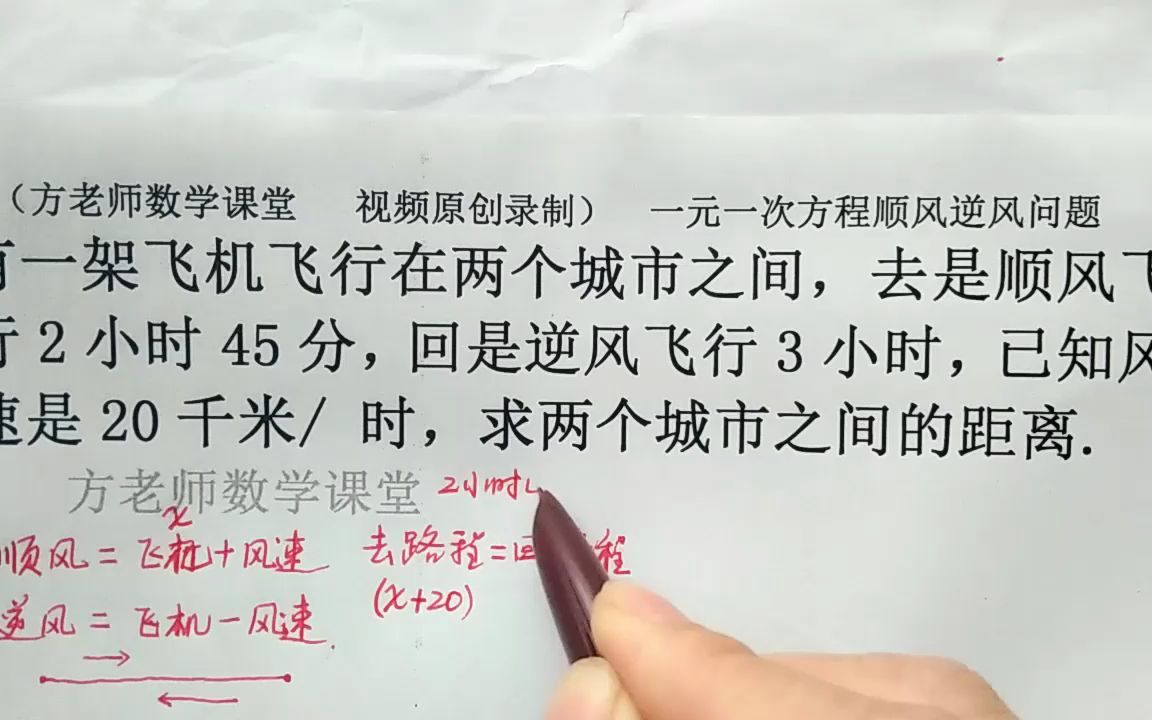 （方老师数学课堂 视频原创录制） 一元一次方程顺风逆风问题
有一架飞机飞行在两个城市之间，去是顺风飞
行 2 小时 45 分，回是逆风飞行 3 小时，已知风
速是 20 千米/ 时，求两个城市之间的距离.
方老师数学课堂 2小时4
x
顺风 = 飞机+风速 去路程=回 程
逆风 = 飞机-风速 (x+20)